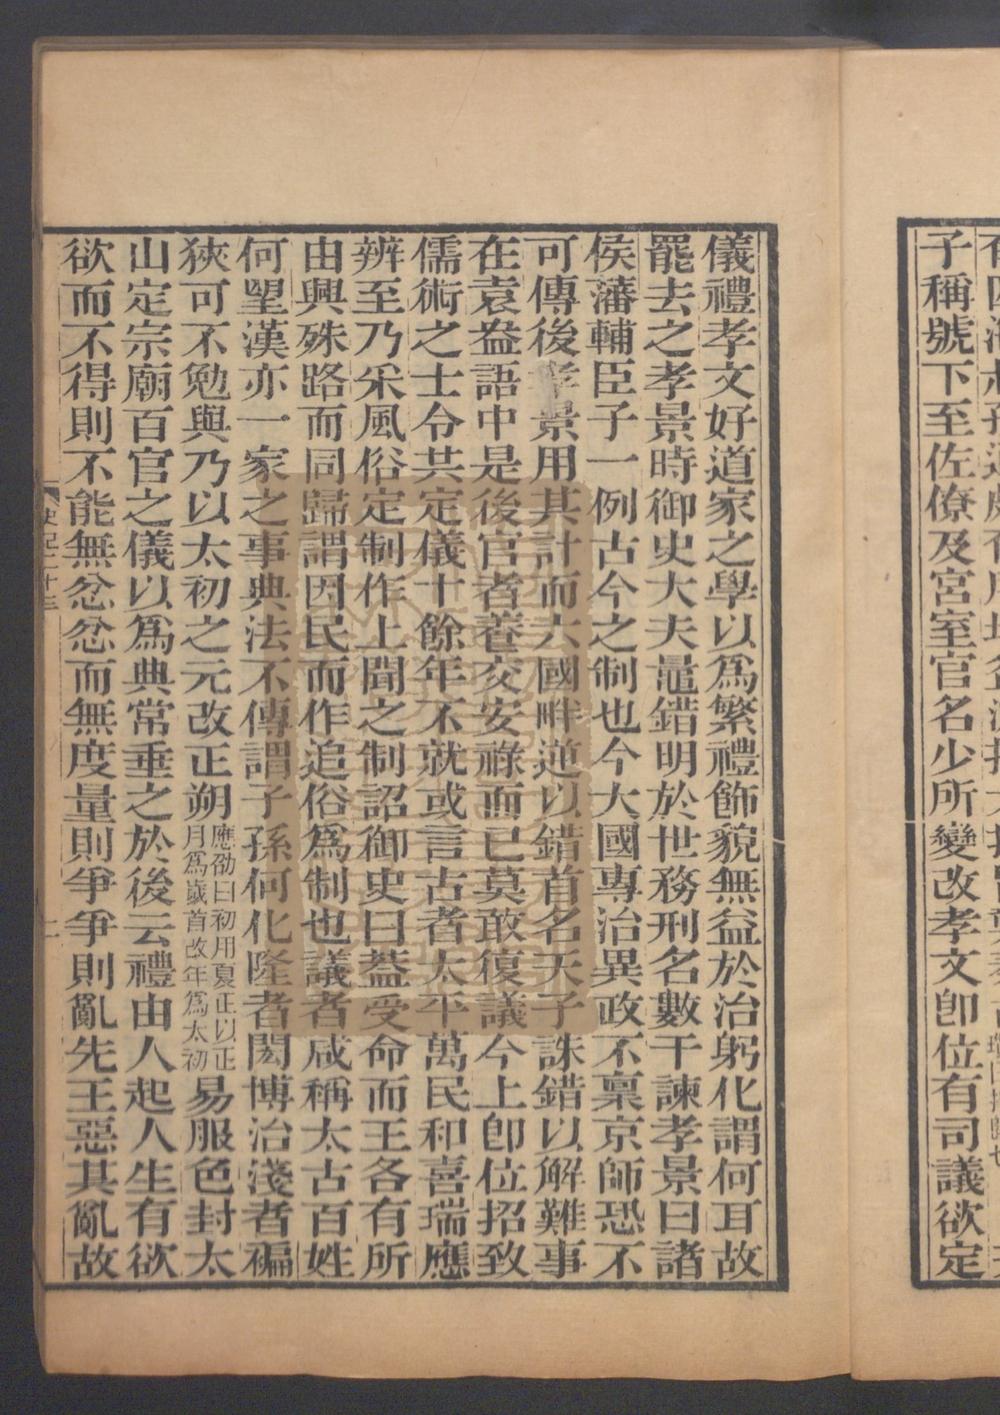 子稱號下至佐僚及宮室官名少所變改孝文卽位有司議欲定
儀禮孝文好道家之學以爲繁禮飾貌無益於治躬化謂何耳故
罷去之孝景時御史大夫鼂錯明於世務刑名數干諫孝景曰諸
侯藩輔臣子一例古今之制也今大國專治異政不稟京師恐不
可傳後孝景用其計而六國畔逆以錯首名天子誅錯以解難事
在袁盎語中是後官者養交安祿而已莫敢復議今上卽位招致
儒術之士令共定儀十餘年不就或言古者太平萬民和喜瑞應
辨至乃采風俗定制作上聞之制詔御史曰蓋受命而王各有所
由興殊路而同歸謂因民而作追俗爲制也議者咸稱太古百姓
何望漢亦一家之事典法不傳謂子孫何化隆者閎博治淺者褊
狹可不勉與乃以太初之元改正朔應劭曰初用夏正以正月爲歲首改年爲太初易服色封太
山定宗廟百官之儀以爲典常垂之於後云禮由人起人生有欲
欲而不得則不能無忿忿而無度量則爭爭則亂先王惡其亂故
史記二十三